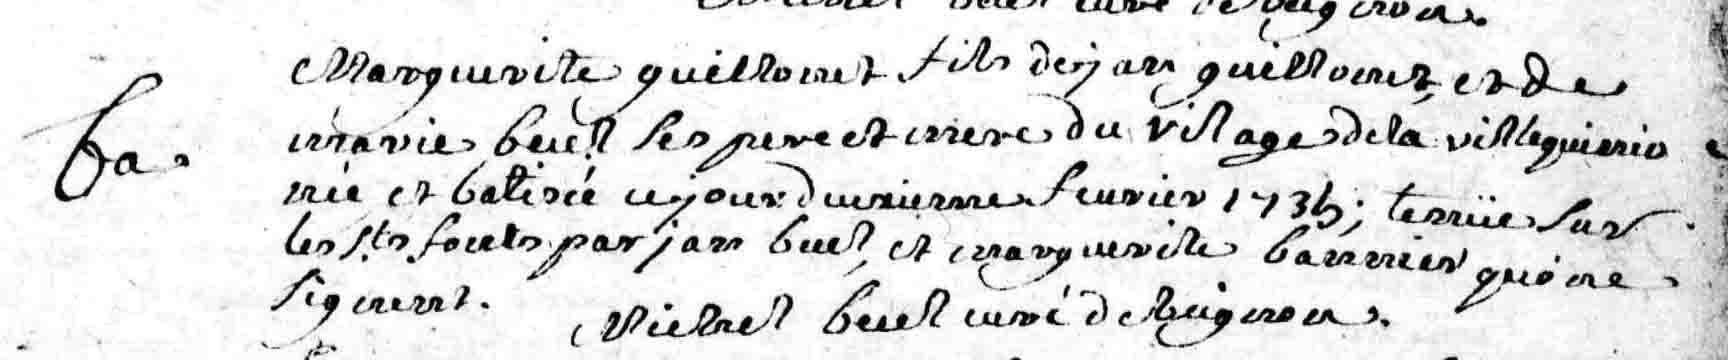 curé de
Marguerite guillouet fils de jan guillouet, et de
marie buel ses pere et mere du village de la
ba. née et batisée ce jour deuxieme feurier 173 ; tenüe sur
les sts fonts par jan buel, et marguerite qui ne
signent. Michel buel curé de